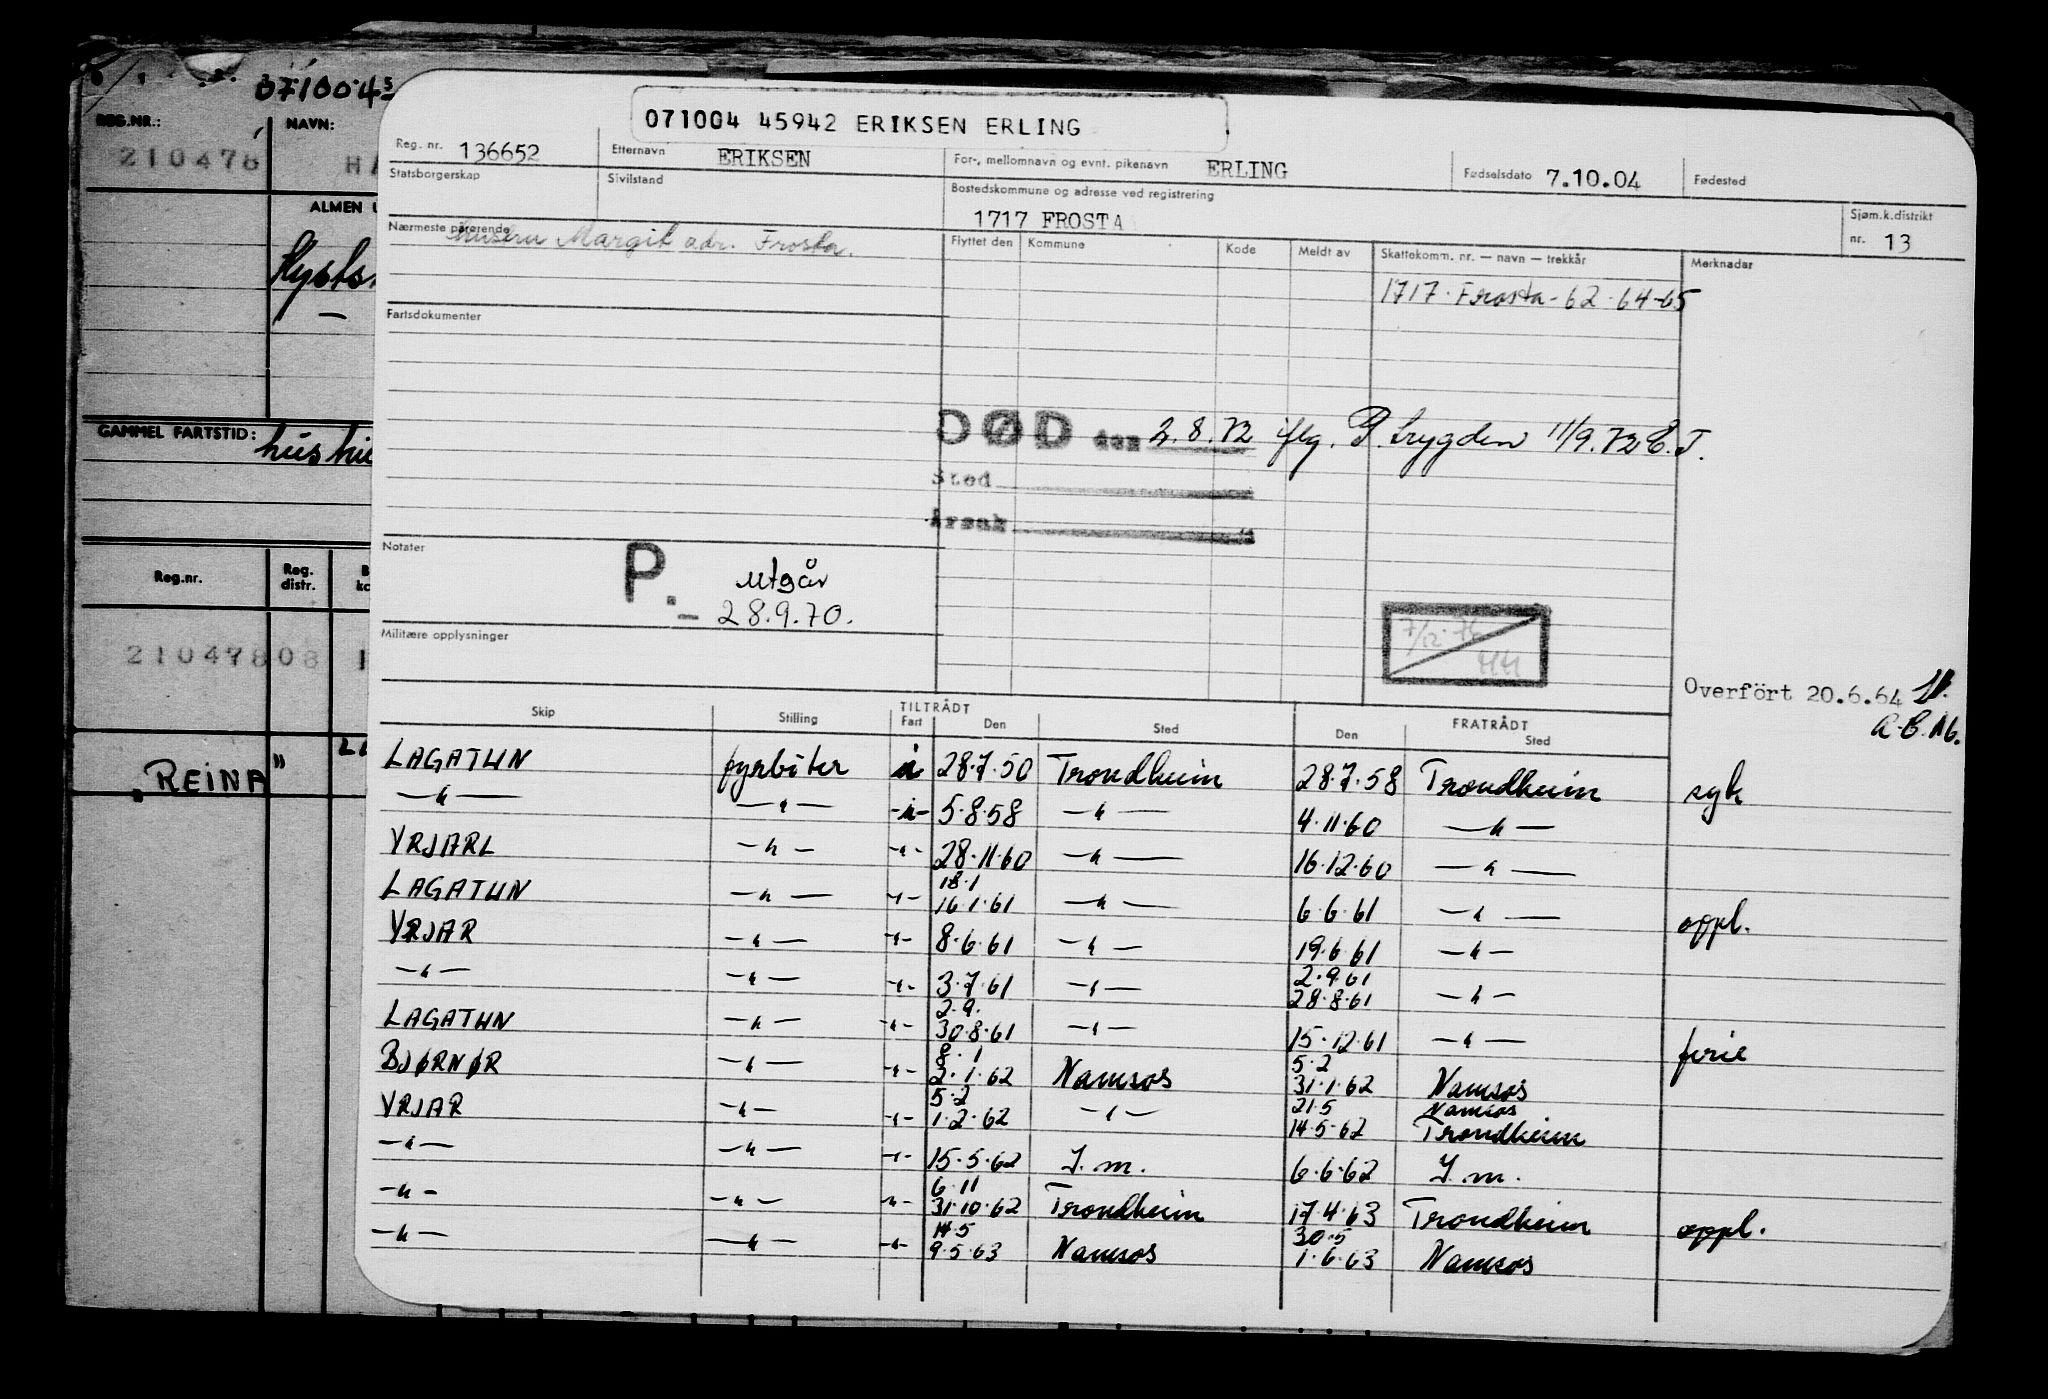 071004⁵
REG.NR.: NAVN:
210478 HA
ALMEN
GAMMEL FARTSTID:
Reg.nr. Reg. distr.
21047808
"REINA"
071004 45942 ERIKSEN ERLING
Reg. nr. 136652 Etternavn ERIKSEN For-, mellomnavn og evnt. pikenavn ERLING Fødselsdato 7.10.04 Fødested
Statsborgerskap Sivilstand Bostedskommune og adresse ved registrering
1717 FROSTA Sjøm.k.distrikt nr. 13
Nærmeste pårørende Hustru Margit adr. Frosta.
Flyttet den Kommune Kode Meldt av Skattekomm. nr. — navn — trekkår Merknader
1717. Frosta-62-64-65
Fartsdokumenter
DØD den 2.8.72 iflg. P. trygden 11/9.72 E.T.
Sted
Årsak
Notater P.- utgår
28.9.70.
Militære opplysninger
7/12-76
HH
Overfört 20.6.64
Skip Stilling TILTRÅDT FRATRÅDT
Fart Den Sted Den Sted
LAGATUN fyrböter i 28.7.50 Trondheim 28.7.58 Trondheim syk
—"— —"— -"- 5.8.58 —"— 4.11.60 —"—
YRJARL —"— -"- 28.11.60 —"— 16.12.60 —"—
18.1
LAGATUN —"— -"- 16.1.61 —"— 6.6.61 —"— oppl.
YRJAR —"— -"- 8.6.61 —"— 19.6.61 —"—
2.9.61
—"— —"— -"- 3.7.61 —"— 28.8.61 —"—
2.9.
LAGATUN —"— -"- 30.8.61 —"— 15.12.61 —"— ferie
8.1 5.2
BJØRNØR —"— -"- 2.1.62 Namsos 31.1.62 Namsos
5.2 21.5 Namsos
YRJAR —"— -"- 1.2.62 —"— 14.5.62 Trondheim
—"— —"— -"- 15.5.62 T.m. 6.6.62 T.m.
6.11
—"— —"— -"- 31.10.62 Trondheim 17.4.63 Trondheim oppl.
14.5 30.5
—"— —"— -"- 9.5.63 Namsos 1.6.63 Namsos